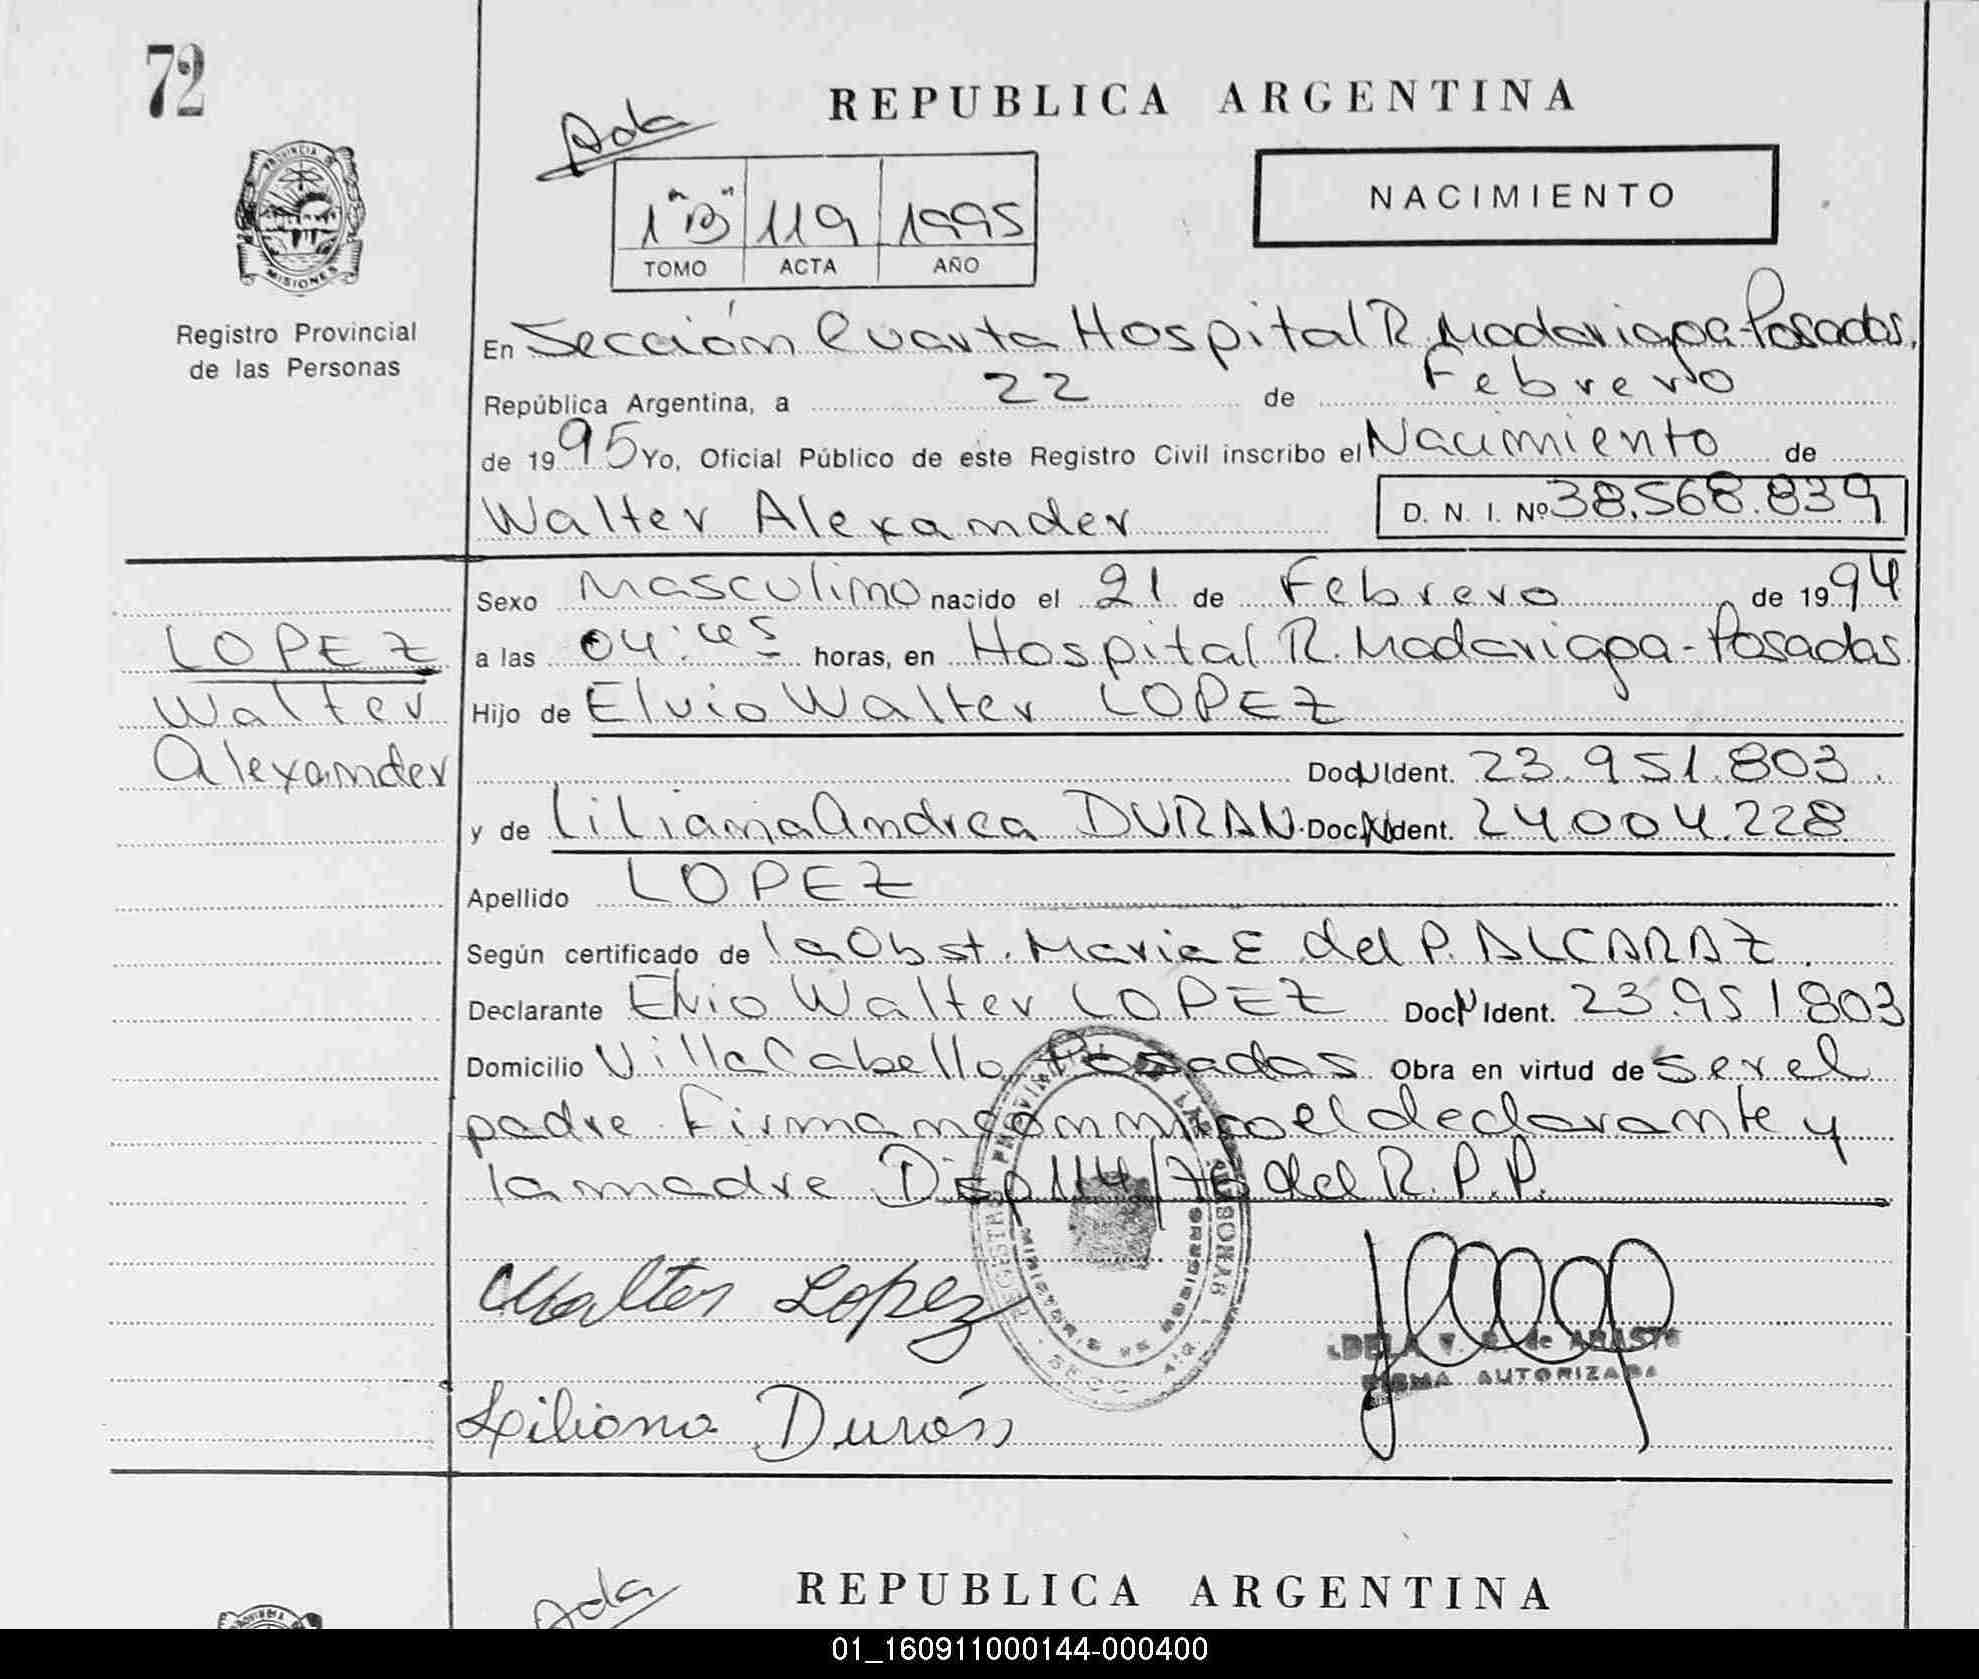 72
REPUBLICA ARGENTINA
Ada
1º "B" 119 1995
TOMO ACTA AÑO
NACIMIENTO
PROVINCIA DE
MISIONES
Registro Provincial
de las Personas
En Sección Cuarta Hospital R. Madariaga-Posadas.
República Argentina, a 22 de Febrero
de 1995 Yo, Oficial Público de este Registro Civil inscribo el Nacimiento de
Walter Alexander D. N. I. Nº 38.568.839
Sexo Masculino nacido el 21 de Febrero de 1994
LOPEZ
Walter
Alexander
a las 04:45 horas, en Hospital R. Madariaga-Posadas.
Hijo de Elvio Walter LOPEZ
Doc N Ident. 23.951.803.
y de Liliana Andrea DURAN. Doc N Ident. 24004.228
Apellido LOPEZ
Según certificado de la Obst. Maria E del P. ALCARAZ.
Declarante Elvio Walter LOPEZ Doc N Ident. 23.951803
Domicilio Villa Cabello Posadas Obra en virtud de ser el
padre. Firman conmigo el declarante y
la madre Disp 114/76 del R.P.P.
Walter Lopez
DELA V. de ABASTO
FIRMA AUTORIZADA
Liliana Durán
Ada
REPUBLICA ARGENTINA
01_160911000144-000400